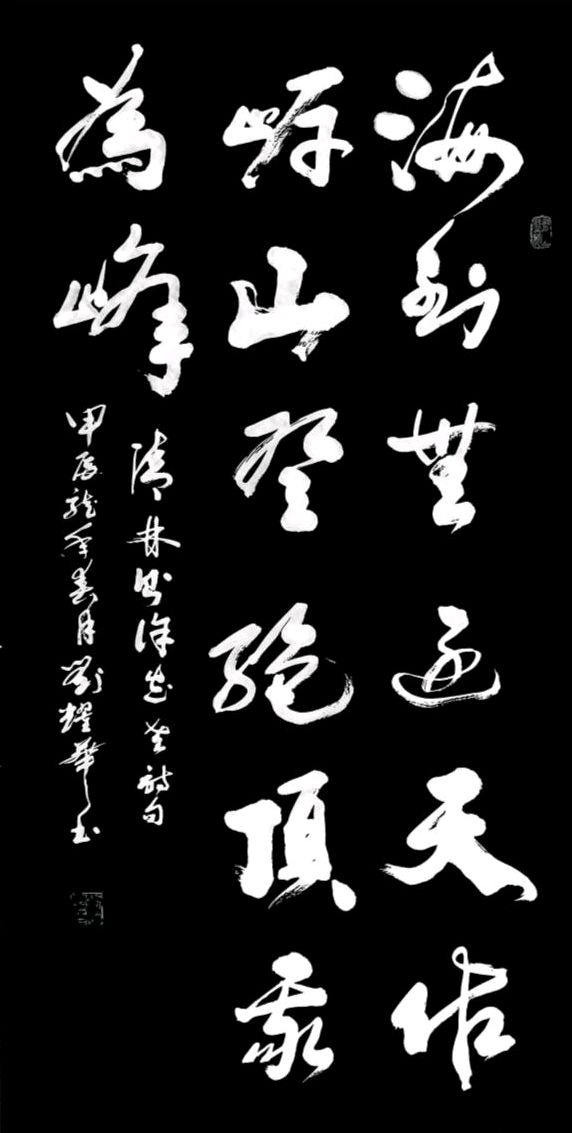 海到無邊天作
岸山登絕頂我
為峰
清林則徐出老詩句
甲辰龍年春月劉耀華書